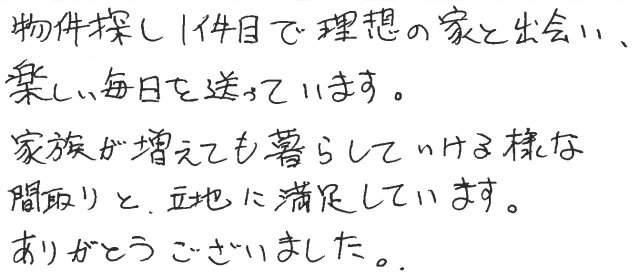 物件探し1件目で理想の家と出会い、
楽しい毎日を送っています。
家族が増えても暮らしていける様な
間取りと、立地に満足しています。
ありがとうございました。